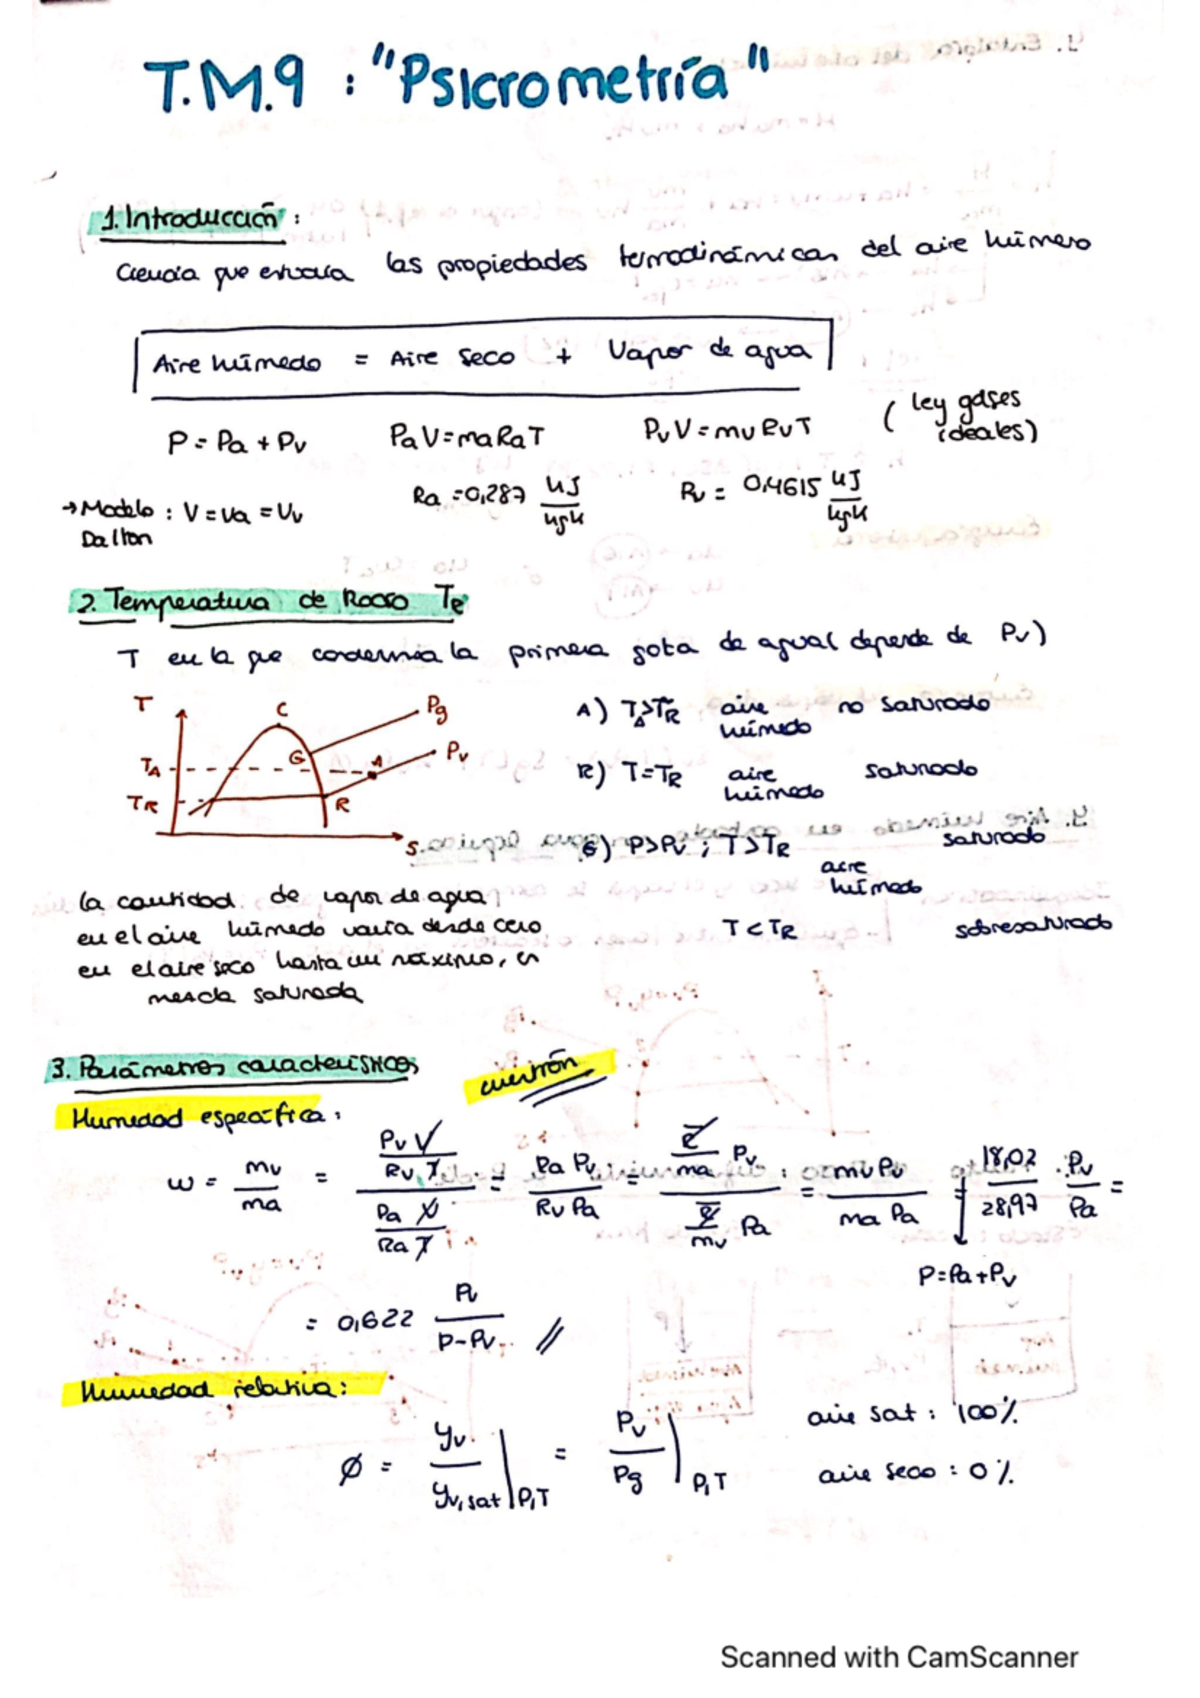 T.M.9 : "Psicrometría"
1. Introducción :
Ciencia que estudia las propiedades termodinámicas del aire húmero
Aire húmedo = Aire seco + Vapor de agua
P = Pa + Pv PaV = maRaT PvV = mvRvT ( ley gases ideales)
→ Modelo Dalton : V = Va = Vv Ra = 0,287 kJ/kgK Rv = 0,4615 kJ/kgK
2. Temperatura de Rocío TR
T en la que condensa la primera gota de agua( depende de Pv)
T C Pg
TA G A Pv
TR R
S
A) TA>TR aire húmedo no saturado
R) T=TR aire húmedo saturado
G) P>Pv ; T>TR saturado
aire húmedo
T<TR sobresaturado
la cantidad de vapor de agua
en el aire húmedo varía desde cero
en el aire seco hasta un máximo, en
mezcla saturada
3. Parámetros característicos cuestión
Humedad específica :
w = mv/ma = (PvV/RvT)/(PaV/RaT) = RaPv/RvPa = (R/ma Pv)/(R/mv Pa) = mvPv/maPa = 18,02/28,97 · Pv/Pa =
P=Pa+Pv
= 0,622 Pv/P-Pv //
Humedad relativa :
Ø = yv/yv,sat |P,T = Pv/Pg |P,T
aire sat : 100%
aire seco : 0%
Scanned with CamScanner